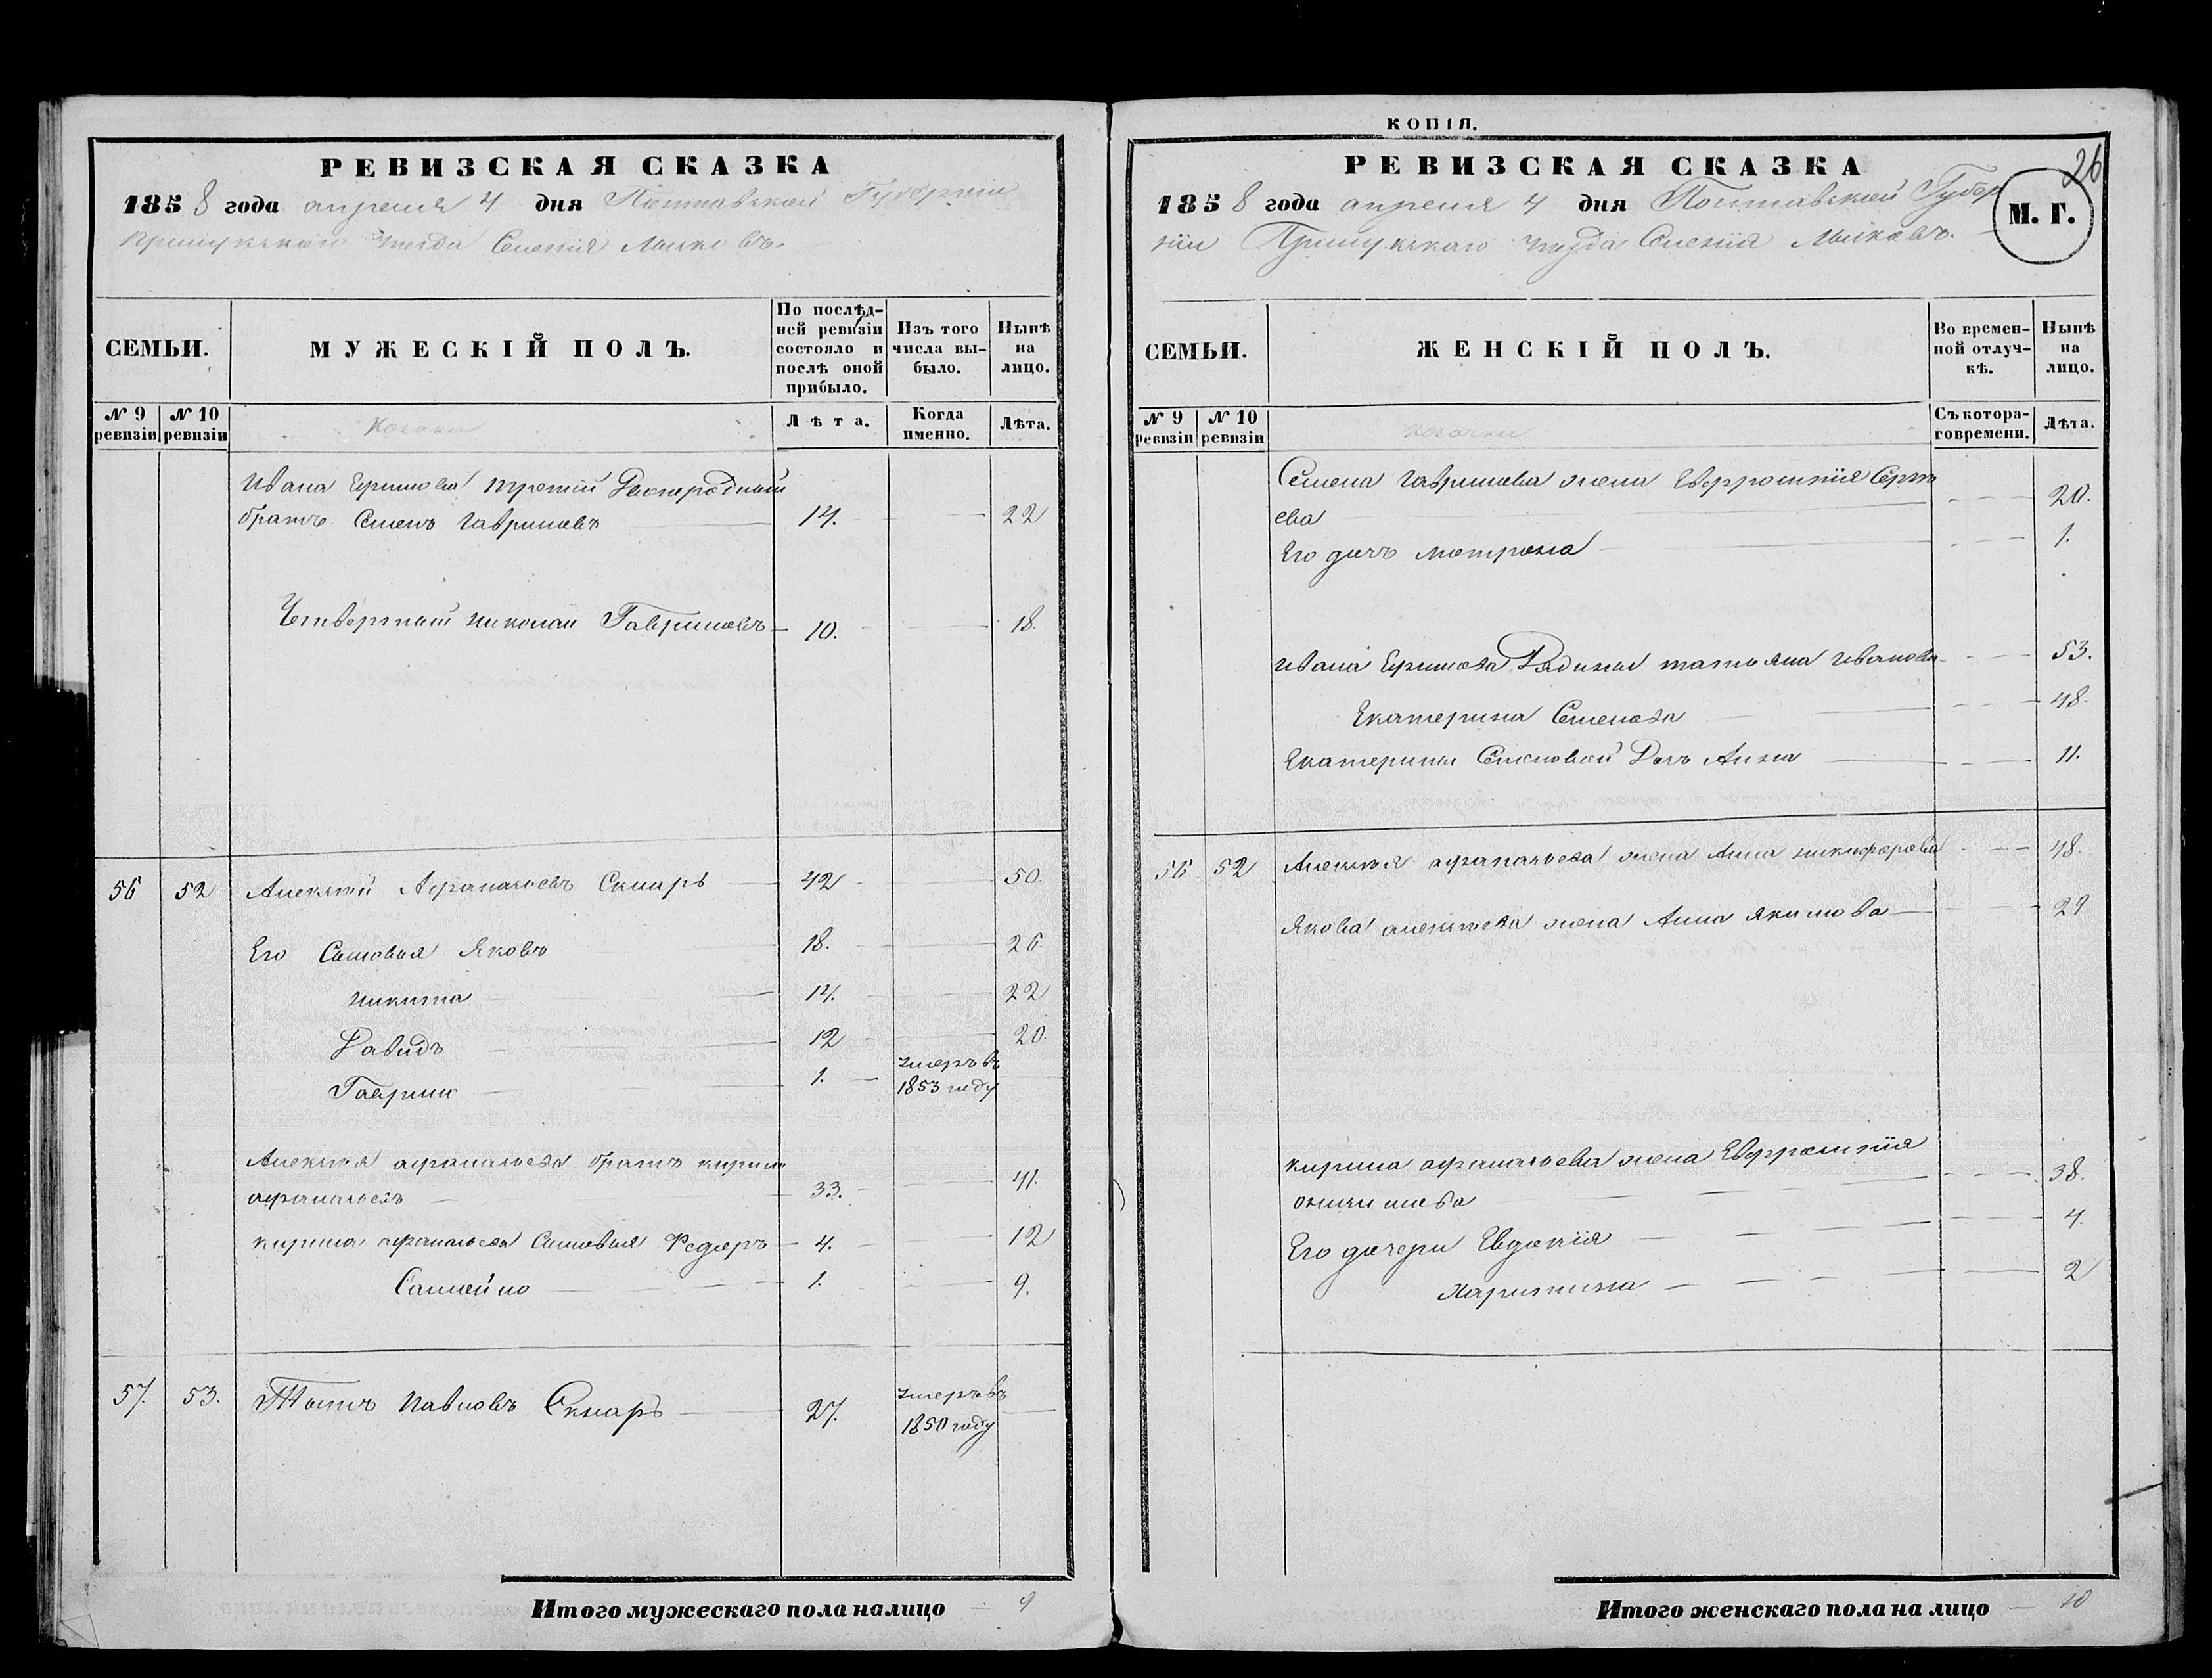 РЕВИЗСКАЯ СКАЗКА
1858 года апреля 4 дня Полтавской Губернии
Прилукскаго уезда Селенія Мильковъ.
СЕМЬИ.
МУЖЕСКІЙ ПОЛЪ.
По послѣд-
ней ревизіи
состояло и
послѣ оной
прибыло.
Изъ того
числа вы-
было.
Нынѣ
на
лицо.
№ 9
ревизіи
№ 10
ревизіи
Козаки
Лѣта.
Когда
именно.
Лѣта.
Ивана Ефимова третій Двоюродный
братъ Семенъ Гавриловъ 14. 22
Четвертый Николай Гавриловъ 10. 18.
56 52 Алексѣй Афанасьевъ Скляръ 42 50.
Его Сыновья Яковъ 18. 26.
Никита 14. 22
Давидъ 12 20.
Гаврило 1. умеръ въ
1853 году
Алексѣя Афанасьева братъ Кирило
Афанасьевъ 33. 41.
Кирила Афанасьева Сыновья Федоръ 4. 12
Самойло 1. 9.
57. 53. Титъ Павловъ Скляръ 27. умеръ въ
1850 году
Итого мужескаго пола налицо 9
КОПІЯ.
26
РЕВИЗСКАЯ СКАЗКА
1858 года апреля 4 дня Полтавской Губер
ніи Прилукскаго уезда Селенія Мильковъ.
М. Г.
СЕМЬИ.
ЖЕНСКІЙ ПОЛЪ.
Во времен-
ной отлуч-
кѣ.
Нынѣ
на
лицо.
№ 9
ревизіи
№ 10
ревизіи
Козачки
Съ котора-
го времени.
Лѣта.
Семена Гаврилова жена Евфросинія Серге
ева 20.
Его дочь Мотрона 1.
Ивана Ефимова Дядины Татьяна Иванова 53.
Екатерина Семенова 48.
Екатерины Семеновой Дочь Анна 11.
56 52 Алексѣя Афанасьева жена Анна Никифорова 48.
Якова Алексѣева жена Анна Якимова 29
Кирила Афанасьева жена Евфросинія
Онисимова 38.
Его дочери Евдокія 4.
Харитина 2
Итого женскаго пола на лицо 10